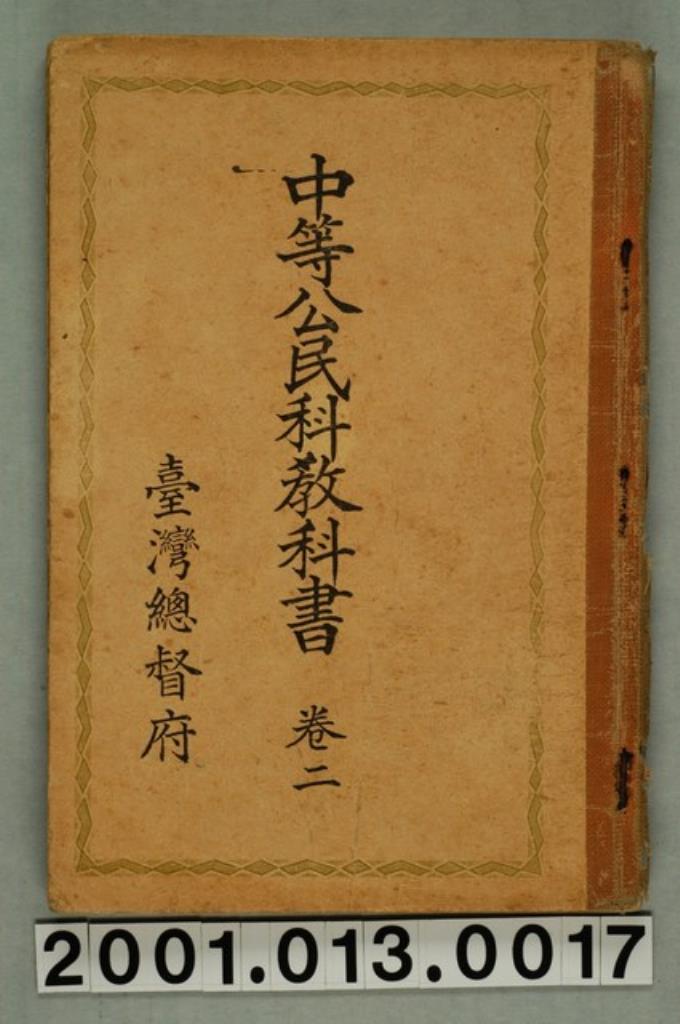 中等公民科教科書 卷二
臺灣總督府
2001.013.0017